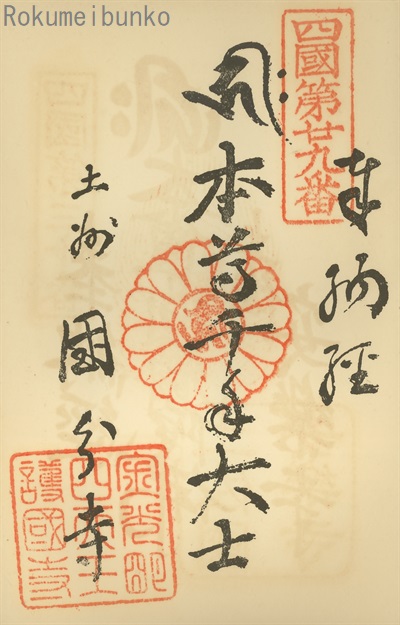 Rokumeibunko
四國第廿九番
奉納經
本尊千手大士
土州 國分寺
金光明
四天王
護國寺